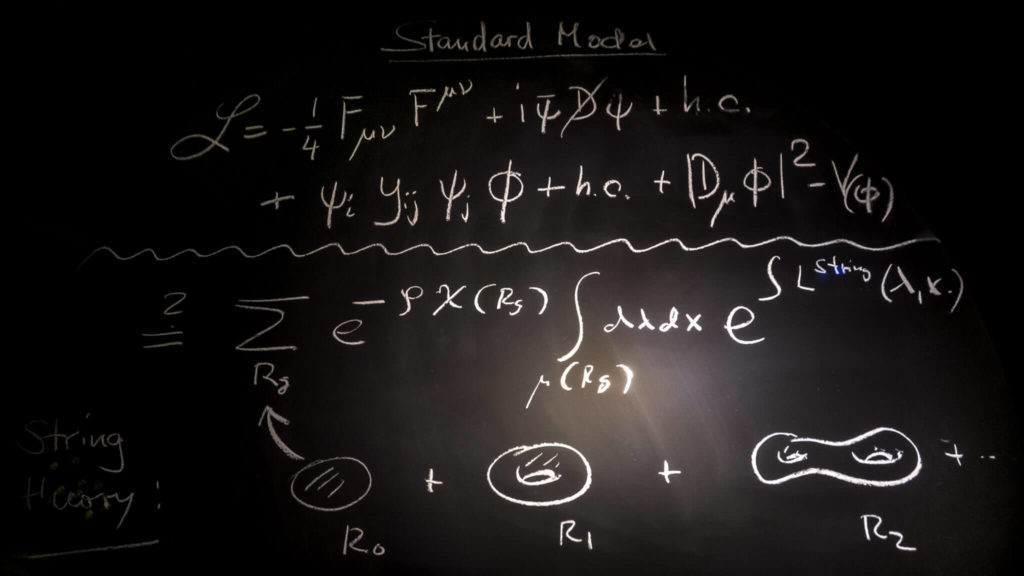 Standard Model
ℒ = -1/4 F_μν F^μν + i ψ̄ D̸ ψ + h.c.
+ ψ_i y_ij ψ_j ϕ + h.c. + |D_μ ϕ|² - V(ϕ)
≟ Σ_{R_g} e^{-ρ χ(R_g)} ∫_{μ(R_g)} dλdx e^{∫ L^string (λ,x.)}
String
theory:
+ + + ..
R₀ R₁ R₂